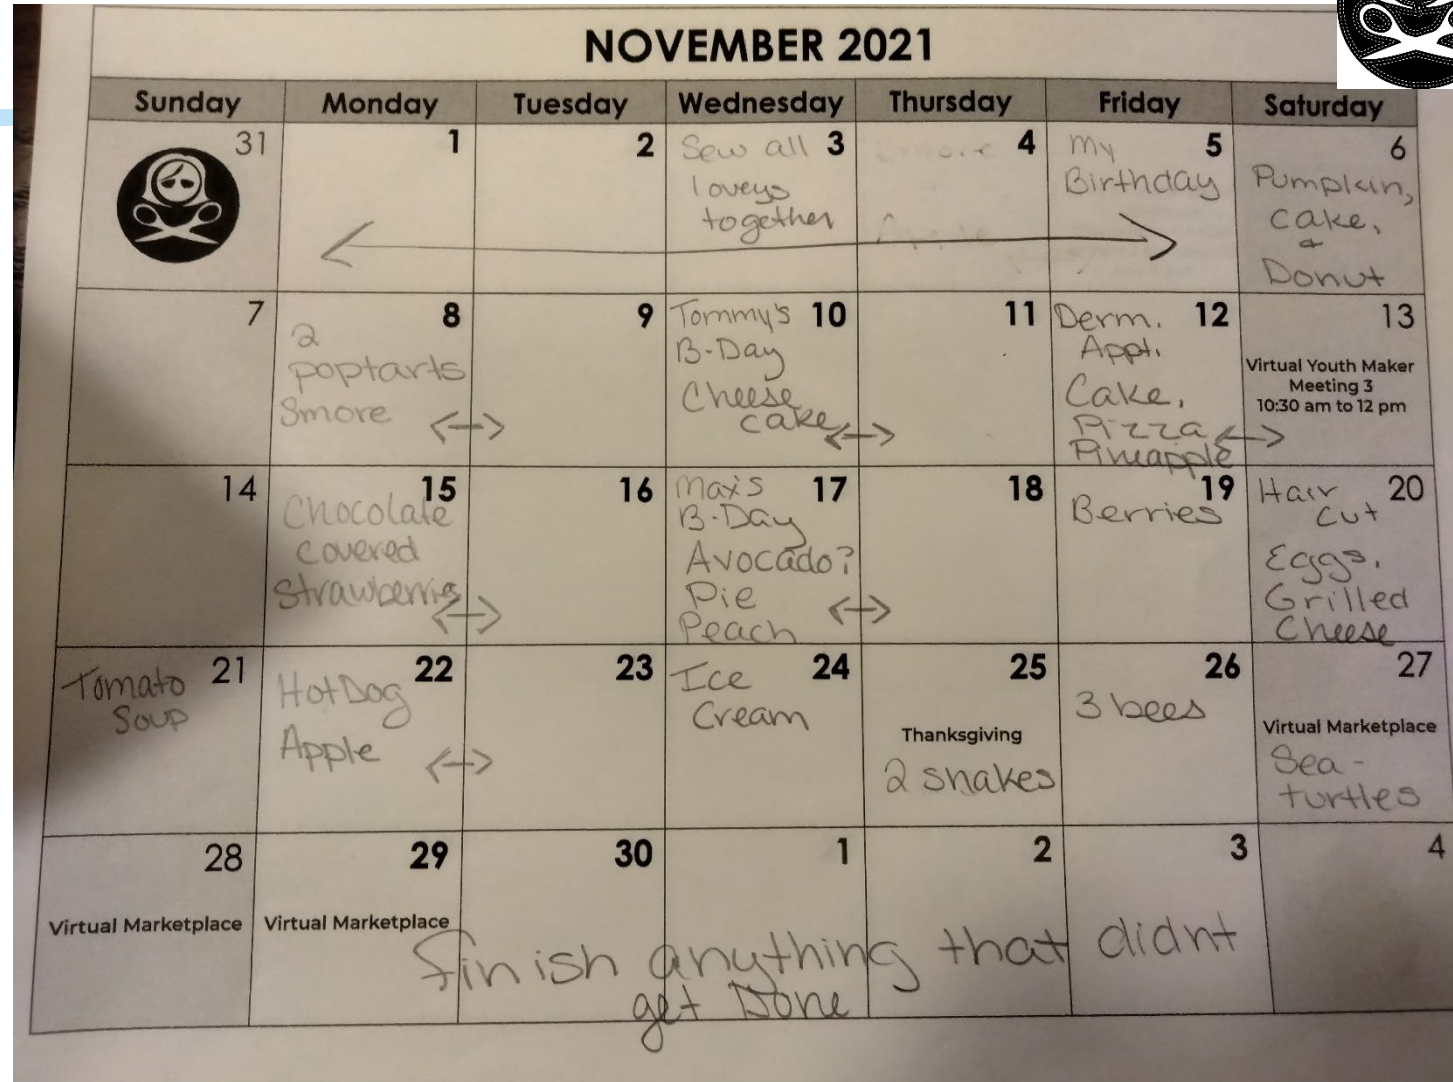 NOVEMBER 2021
Sunday Monday Tuesday Wednesday Thursday Friday Saturday
31
1
2
3
Sew all
loveys
together
4
5
My
Birthday
6
Pumpkin,
cake,
&
Donut
7
8
2
poptarts
Smore
9
10
Tommy's
B-Day
Cheese
cake
11
12
Derm.
Appt.
Cake,
Pizza
Pineapple
13
Virtual Youth Maker
Meeting 3
10:30 am to 12 pm
14
15
Chocolate
covered
strawberries
16
17
Max's
B-Day
Avocado?
Pie
Peach
18
19
Berries
20
Hair
cut
Eggs,
Grilled
Cheese
21
Tomato
Soup
22
Hot Dog
Apple
23
24
Ice
Cream
25
Thanksgiving
2 snakes
26
3 bees
27
Virtual Marketplace
Sea-
turtles
28
Virtual Marketplace
29
Virtual Marketplace
30
1
2
3
4
finish anything that didnt
get Done